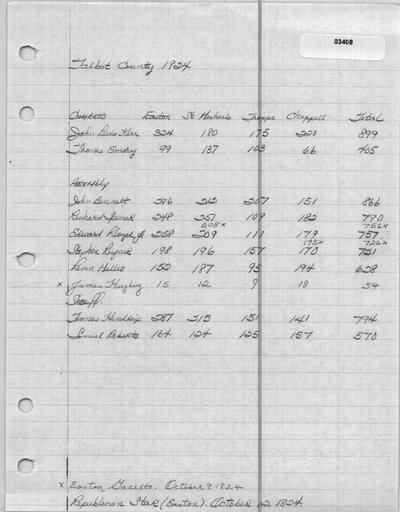 03408
Talbot County 1824
Congress Easton St Michaels Trappe Chappell Total
John Leeds Kerr 324 180 175 220 899
Thomas Emory 99 137 103 66 405
Assembly
John Bennett 296 212 207 151 866
Richard Spencer 248 251 109 182 790
208x 756x
Edward Lloyd Jr 258 209 111 179 757
175x 726x
Stephen Reyner 198 196 157 170 721
Levin Millis 152 187 95 194 628
x James Hughey 15 12 9 18 54
Sheriff
Thomas Hendrix 287 215 151 141 794
Samuel Roberts 164 124 125 157 570
x Easton Gazette. October 9, 1824
Republican Star (Easton). October 12, 1824.